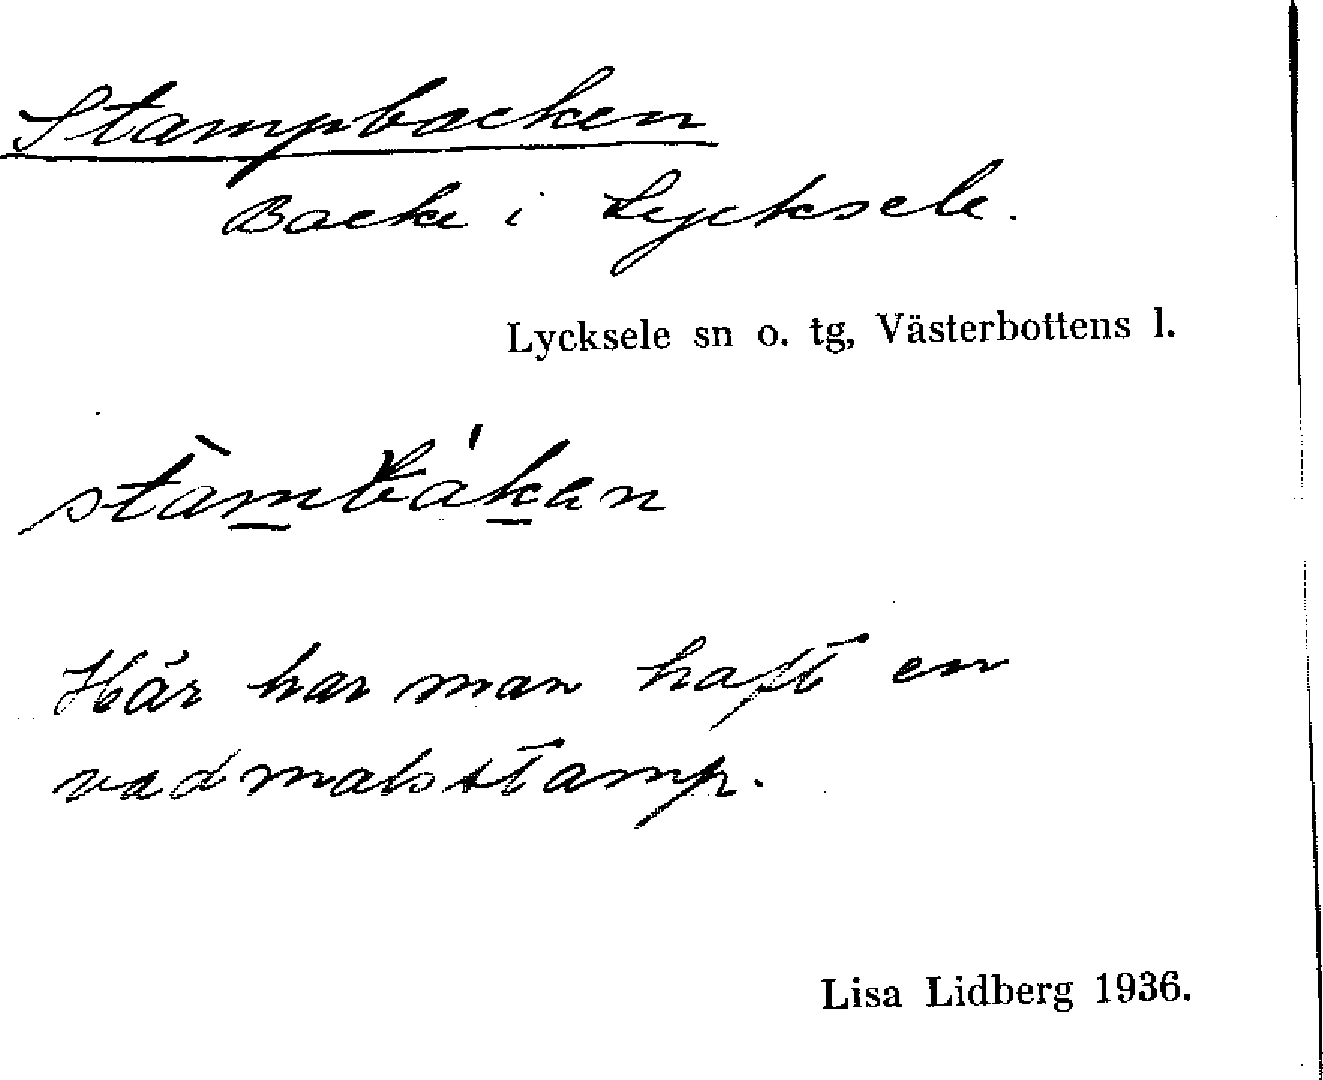 Stampbacken
Backe i Lycksele.
Lycksele sn o. tg, Västerbottens l.
stàmbákan
Här har man haft en
vadmalsstamp.
Lisa Lidberg 1936.